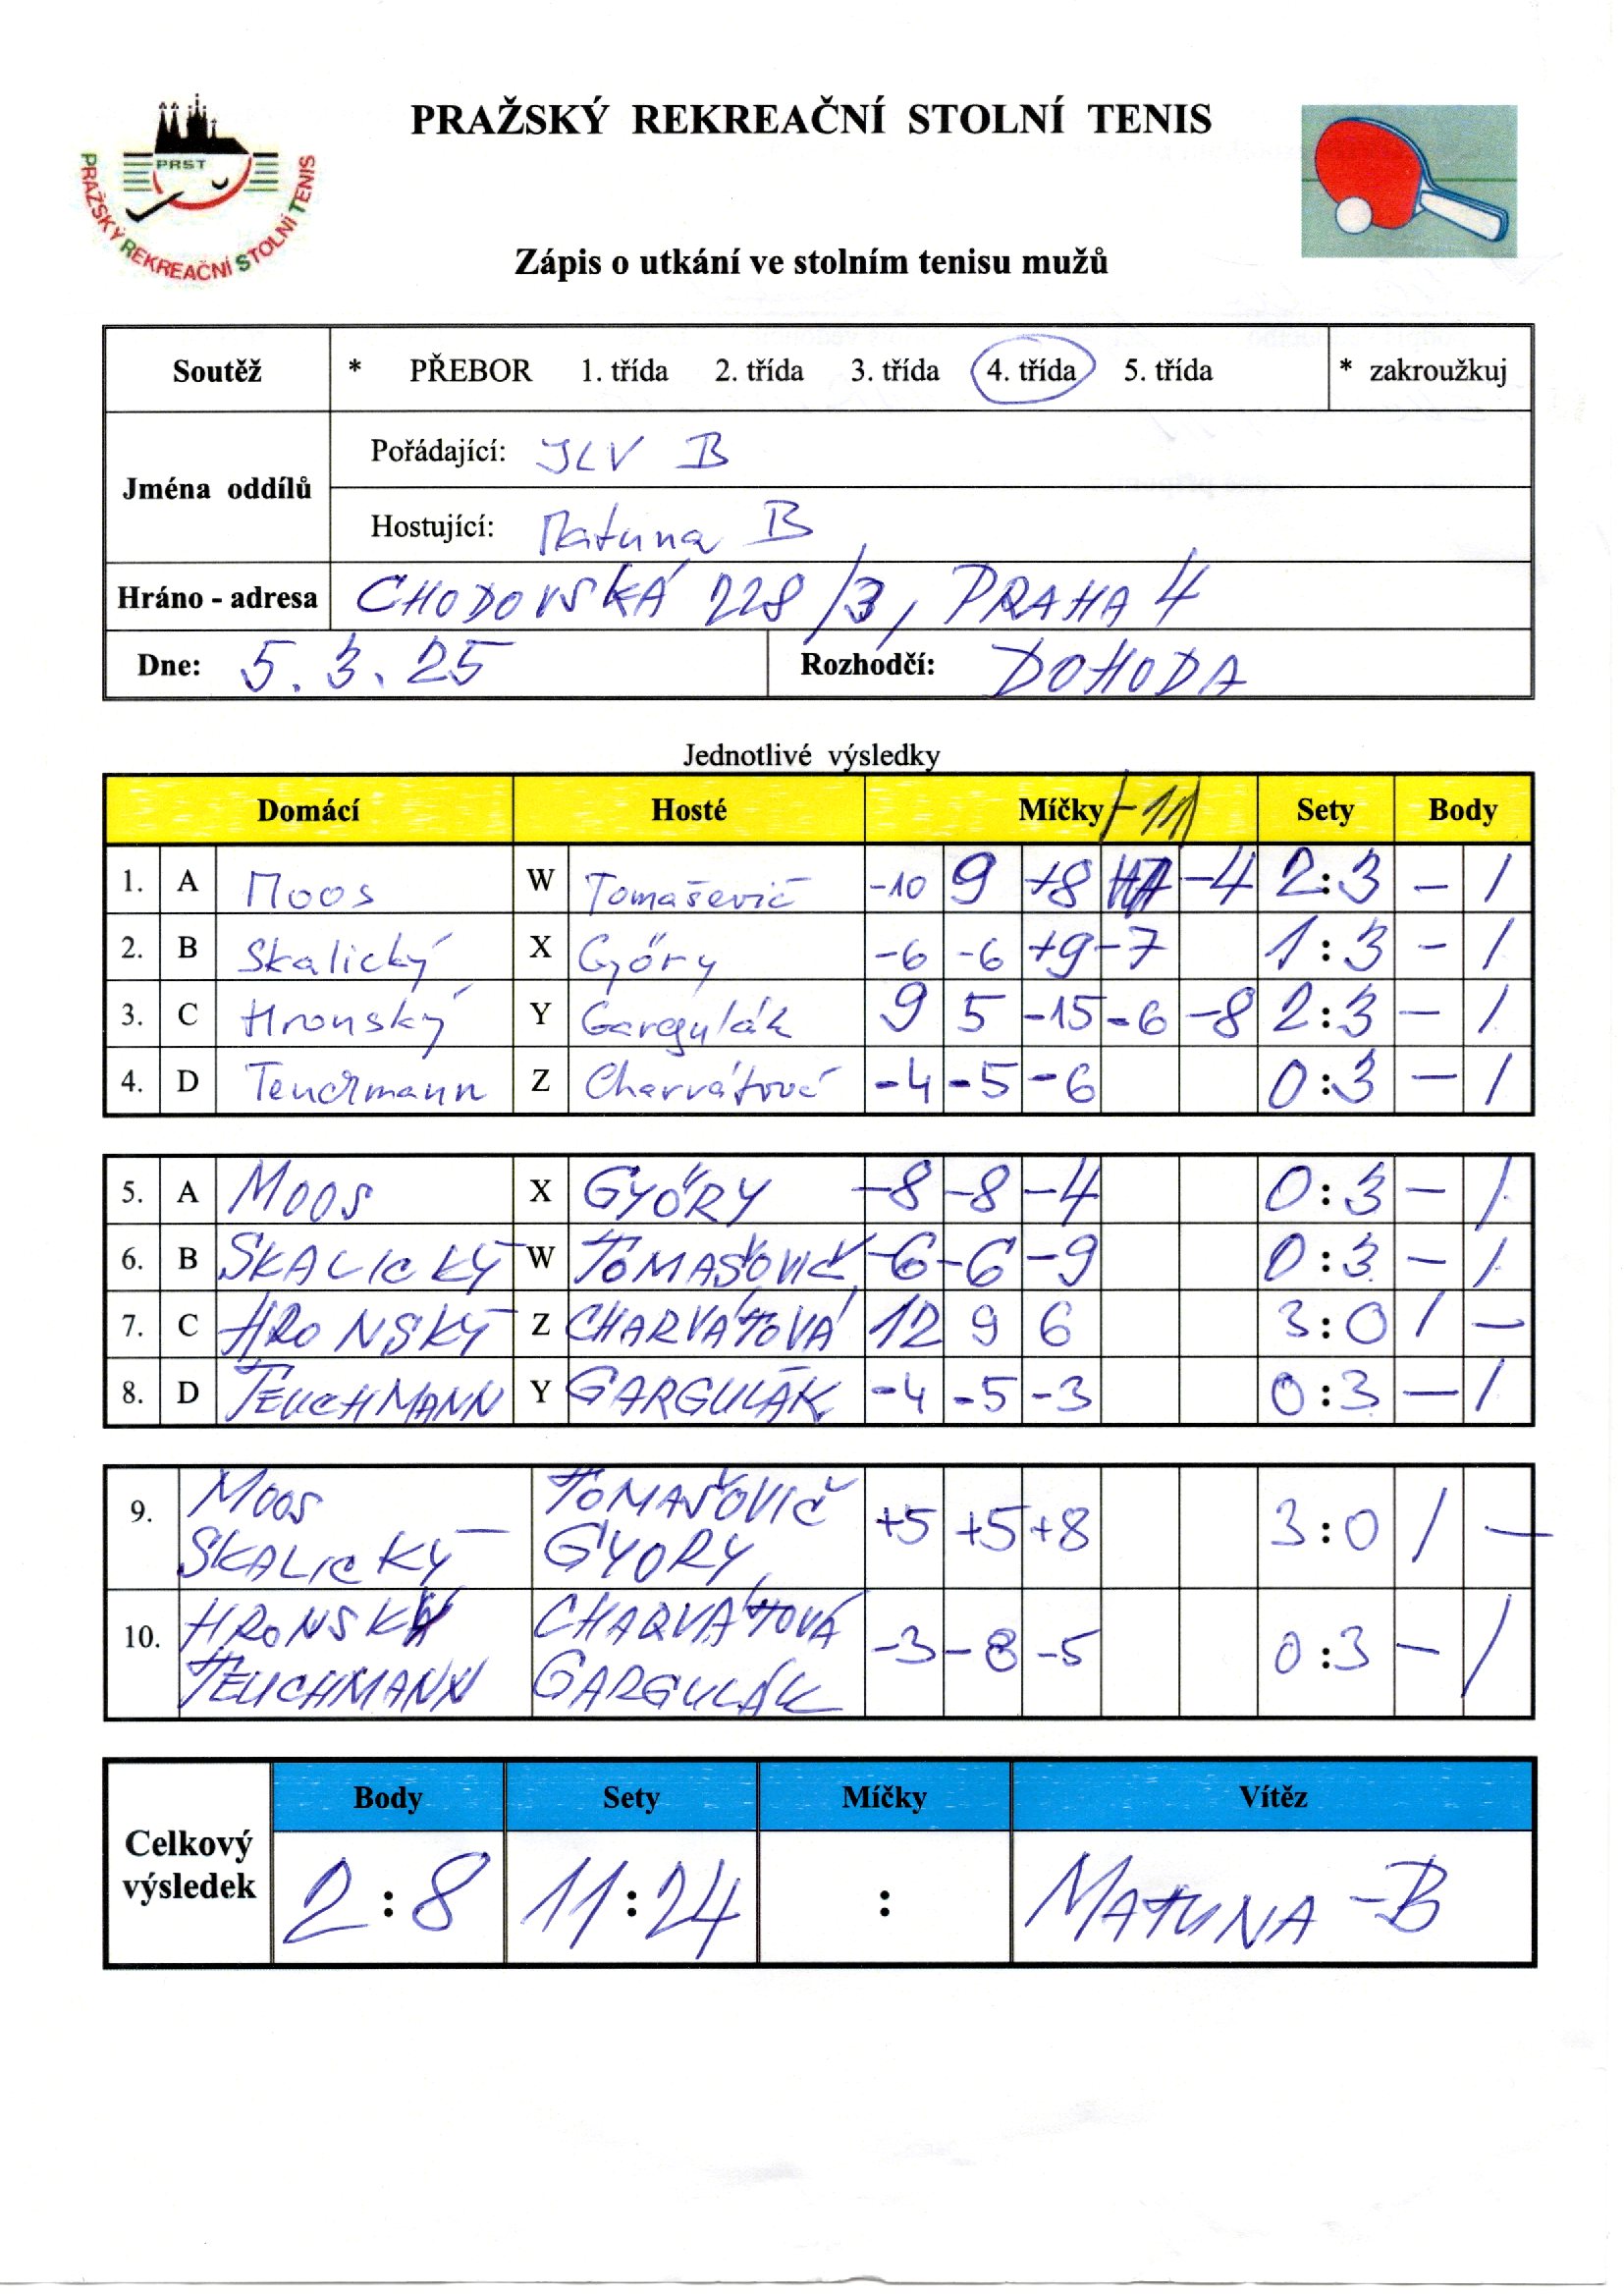 PRAŽSKÝ REKREAČNÍ STOLNÍ TENIS
PRST
PRAŽSKÝ REKREAČNÍ STOLNÍ TENIS
Zápis o utkání ve stolním tenisu mužů
Soutěž * PŘEBOR 1. třída 2. třída 3. třída 4. třída 5. třída * zakroužkuj
Jména oddílů
Pořádající: JLV B
Hostující: Matuna B
Hráno - adresa CHODOVSKÁ 228/3, PRAHA 4
Dne: 5.3.25 Rozhodčí: DOHODA
Jednotlivé výsledky
Domácí Hosté Míčky -11 Sety Body
1. A Moos W Tomaševič -10 9 +8 -4 2:3 - 1
2. B Skalický X Győry -6 -6 +9 -7 1:3 - 1
3. C Hronský Y Gargulák 9 5 -15 -6 -8 2:3 - 1
4. D Teuchmann Z Charvátová -4 -5 -6 0:3 - 1
5. A MOOS X GYŐRY -8 -8 -4 0:3 - 1
6. B SKALICKÝ W TOMAŠOVIČ -6 -6 -9 0:3 - 1
7. C HRONSKÝ Z CHARVÁTOVÁ 12 9 6 3:0 1 -
8. D TEUCHMANN Y GARGULÁK -4 -5 -3 0:3 - 1
9. MOOS TOMAŠOVIČ +5 +5 +8 3:0 1 -
SKALICKÝ GYORY
10. HRONSKÝ CHARVÁTOVÁ -3 -8 -5 0:3 - 1
TEUCHMANN GARGULÁK
Celkový výsledek
Body Sety Míčky Vítěz
2:8 11:24 : MATUNA - B